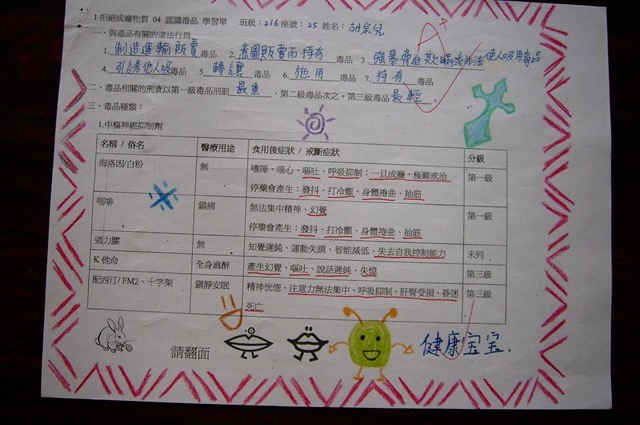 1拒絕成癮物質 04 認識毒品 學習單 班級:216 座號:25 姓名:
一、與毒品有關的違法行為
1.製造運輸販賣毒品 2.意圖販賣而持有毒品 3.強暴脅迫欺瞞或非法使他人吸用毒品
4.引誘他人吸 5.轉讓 6.施用 7.持有毒品
二、毒品相關的刑責以第一級毒品刑罰最重,第二級毒品次之,第三級毒品最輕.
三、毒品種類:
1.中樞神經抑制劑
名稱 / 俗名 醫療用途 食用後症狀 / 戒斷症狀 分級
海洛因/白粉 無 嗜睡、噁心、嘔吐、呼吸抑制;一旦成癮,極難戒治 第一級
停藥會產生:發抖、打冷顫、身體捲曲、抽筋
嗎啡 鎮痛 無法集中精神、幻覺 第一級
停藥會產生:發抖、打冷顫、身體捲曲、抽筋
強力膠 無 知覺遲鈍、運動失調、智能減低、失去自我控制能力 未列
K 他命 全身麻醉 產生幻覺、嘔吐、說話遲鈍、失憶 第三級
配西汀/ FM2、十字架 鎮靜安眠 精神恍惚、注意力無法集中、呼吸抑制、肝腎受損、昏迷 第三級
死亡
請翻面
健康宝宝.